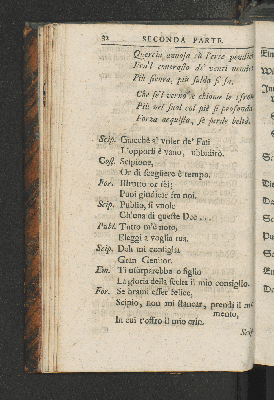 32 SECONDA PARTE.
Quercia annosa sù l'erte pendici
Fra'l contrasto de' venti nemici
Più sicura, più salda si fa.
Che se'l verno le chiome le sfron
Più nel suol col piè si profonda
Forza acquista, se perde beltà.
Scip. Giacchè al voler de' Fati
L'opporsi è vano, ubbidirò.
Cost. Scipione,
Or di scegliere è tempo.
For. Istrutto or sei;
Puoi giudicar fra noi.
Scip. Publio, si vuole
Ch'una di queste Dee...
Publ. Tutto m'è noto,
Eleggi a voglia tua.
Scip. Deh mi consiglia
Gran Genitor.
Em. Ti usurparebbe o figlio
La gloria della scelta il mio consiglio.
For. Se brami esser felice,
Scipio, non mi stancar, prendi il mo-
mento,
In cui t'offro il mio crin.
Scip